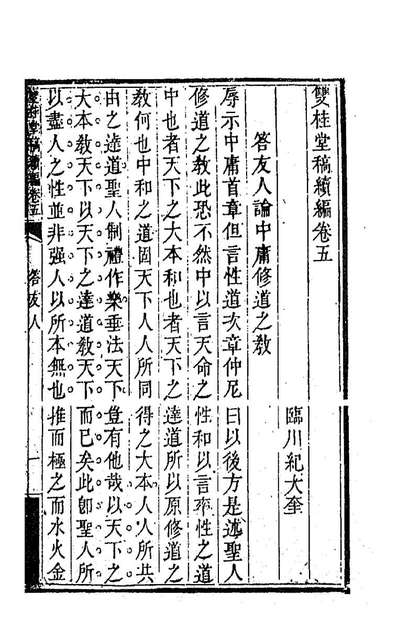 雙桂堂稿續編卷五
臨川紀大奎
答友人論中庸修道之敎
辱示中庸首章但言性道次章仲尼曰以後方是述聖人
修道之敎此恐不然中以言天命之性和以言率性之道
中也者天下之大本和也者天下之達道所以原修道之
敎何也中和之道固天下人人所同得之大本人人所共
由之達道聖人制禮作樂垂法天下豈有他哉以天下之
大本敎天下以天下之達道敎天下而已矣此卽聖人所
以盡人之性並非强人以所本無也推而極之而水火金
雙桂堂稿續編卷五
答友人
一